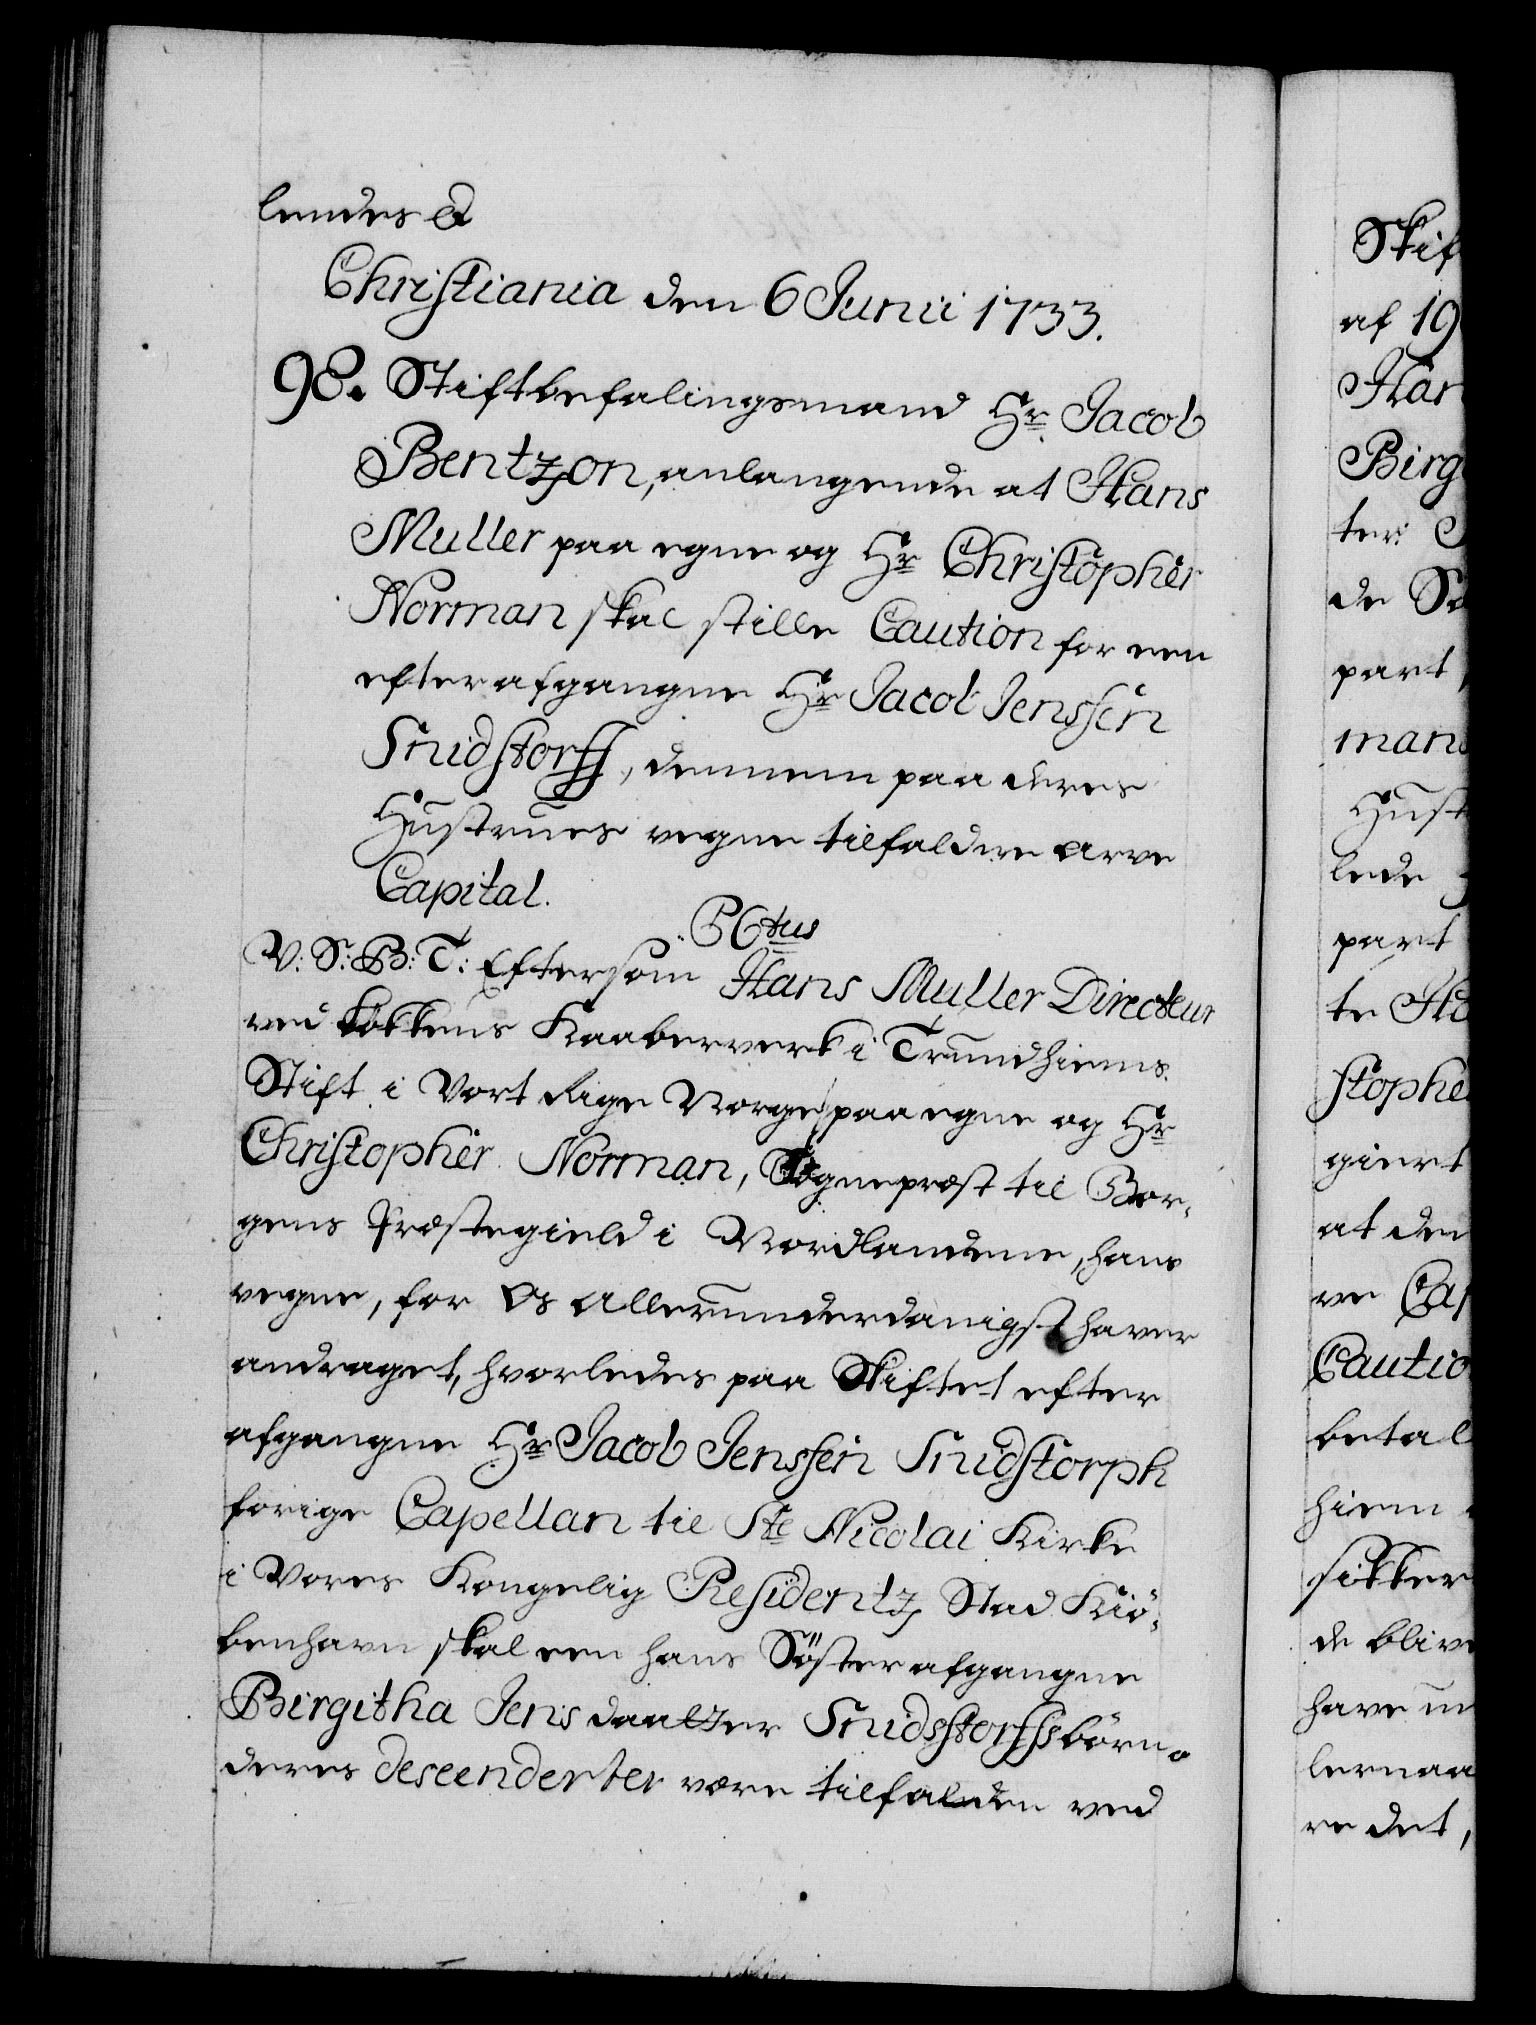 lendes &
Christiania den 6 Junii 1733.
98. Stiftbefalingsmand Hr. Jacob
Bentzon, anlangende at Hans
Muller paa egne og Hr Christopher
Norman skal stille Caution for een
efter afgangne Hr Jacob Jenssen
Snidstorff, dennem paa deres
Hustrues vegne tilfalden arve
Capital.
PCtus
V: S: B: T: Eftersom Hans Muller Directeur
ved Køkkens Kaaberverk i Trundhiems
Stift i Vort Rige Norge paa egne og Hr
Christopher Norman, Sogneprest til Bor-
gens Præstegield i Nordlandene, hans
vegne, for Os allerunderdanigst haver
andraget, hvorledes paa Skiftet efter
afgangne Hr Jacob Jenssen Snidstorph
forige Capellan til Ste Nicolai Kirke
i Vores Kongelig Residentz Stad Kiö-
benhavn skal een hans Söster afgangne
Birgitha Jens daatter Snidsstorffs börn o
deres descendenter være tilfalden ved
Skif
af 19
Han
Birg
ter
de
part
mand
Hust
lede
part
te
stophe
giert
at den
ve Cap
Cautio
betal
hiem
sikker
de blive
have
lernaa
re det,